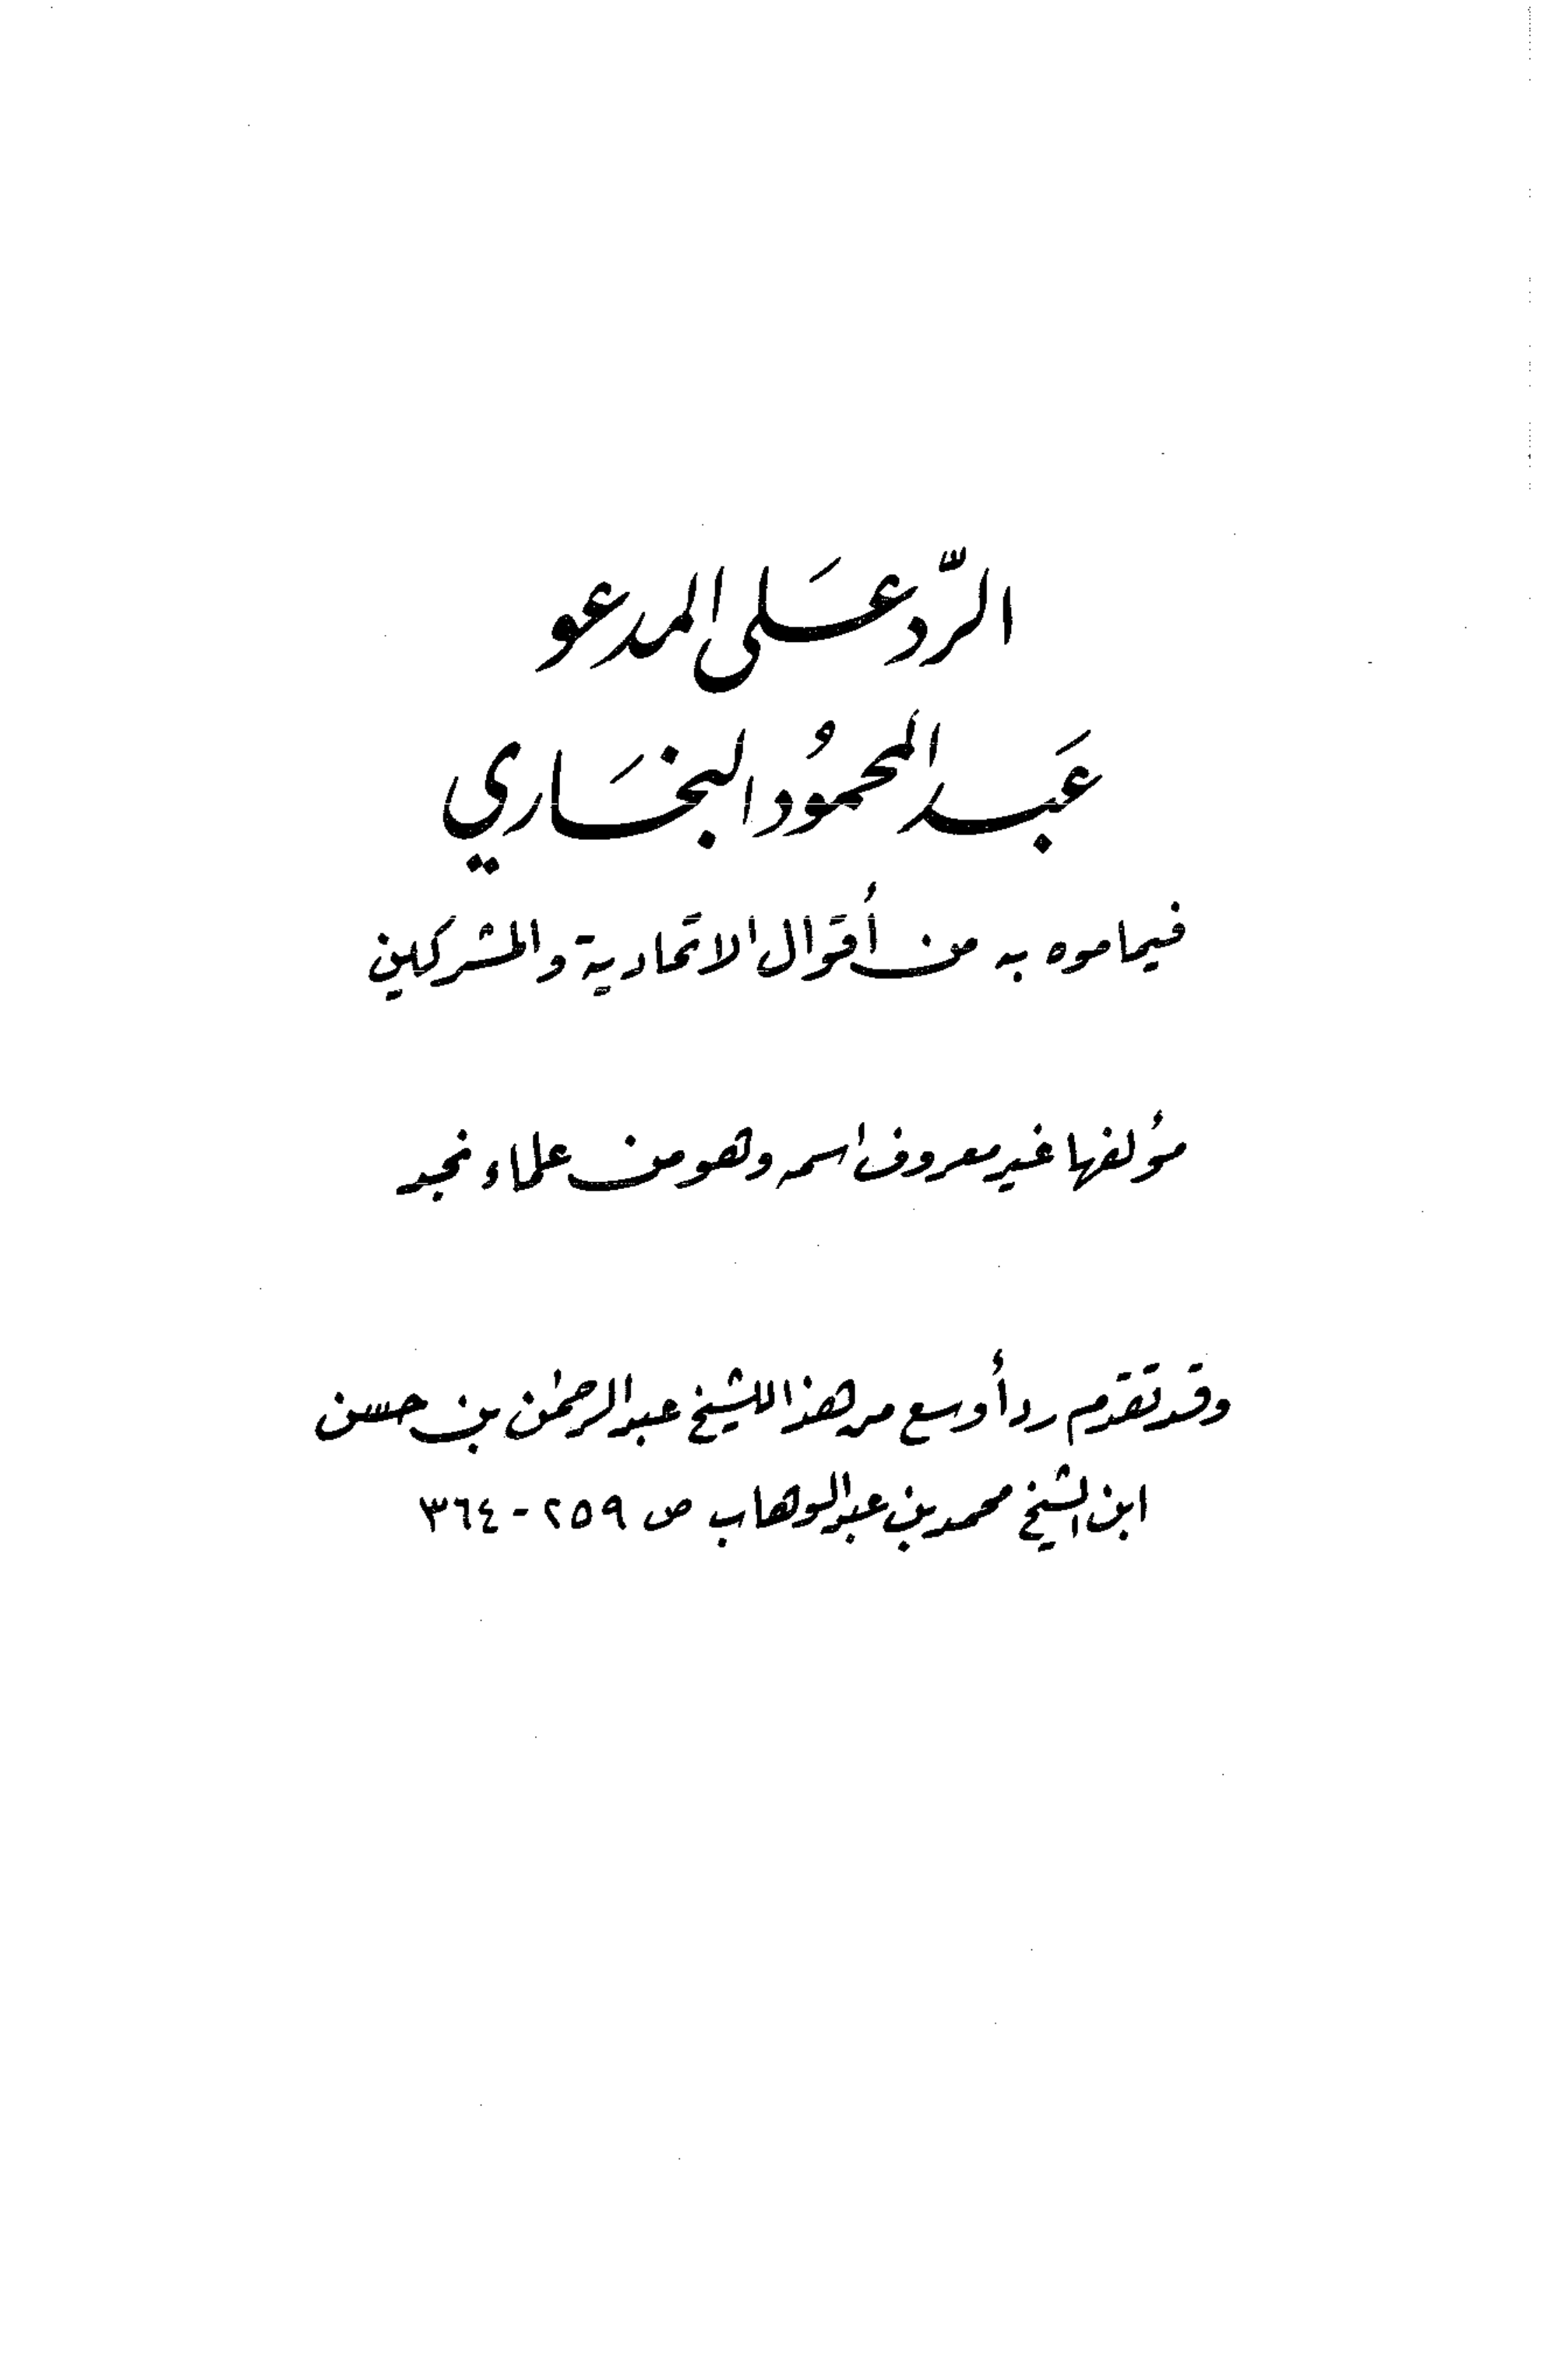 الرّد عَلى المدعو
عَبد المحمُود البخَاري
فيما موه به من أقوال الاتحادية والمشركين
مؤلفها غير معروف اسمه وهو من علماء نجد
وقد تقدم رد أوسع من هذا للشيخ عبد الرحمٰن بن حسن
ابن الشيخ محمد بن عبد الوهاب ص ٢٥٩ - ٣٦٤